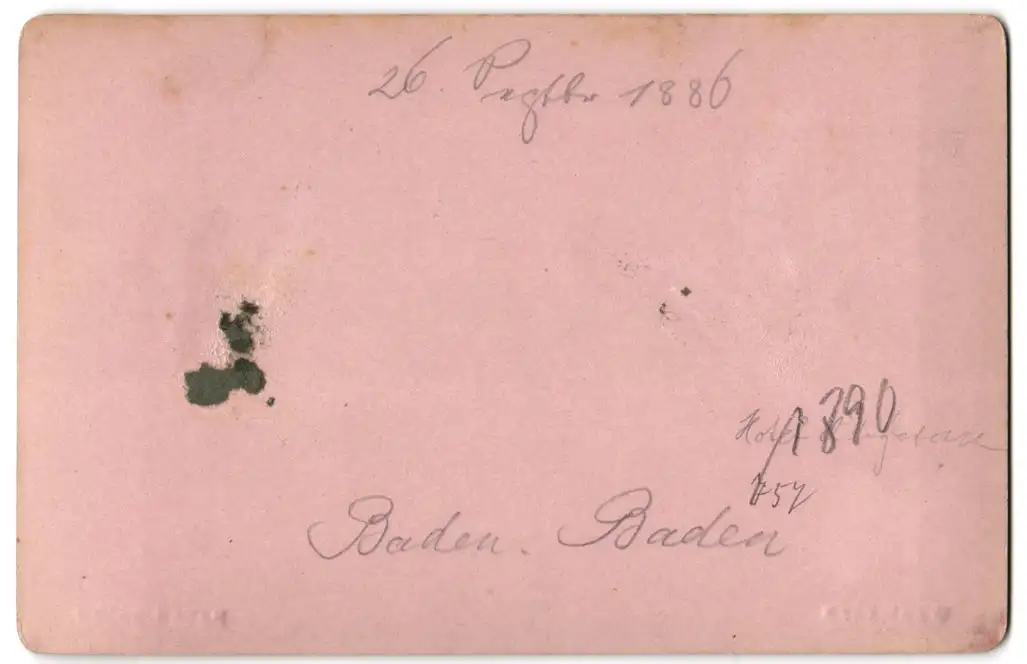 26. Septbr 1886
1890
Hotel
457
Baden. Baden